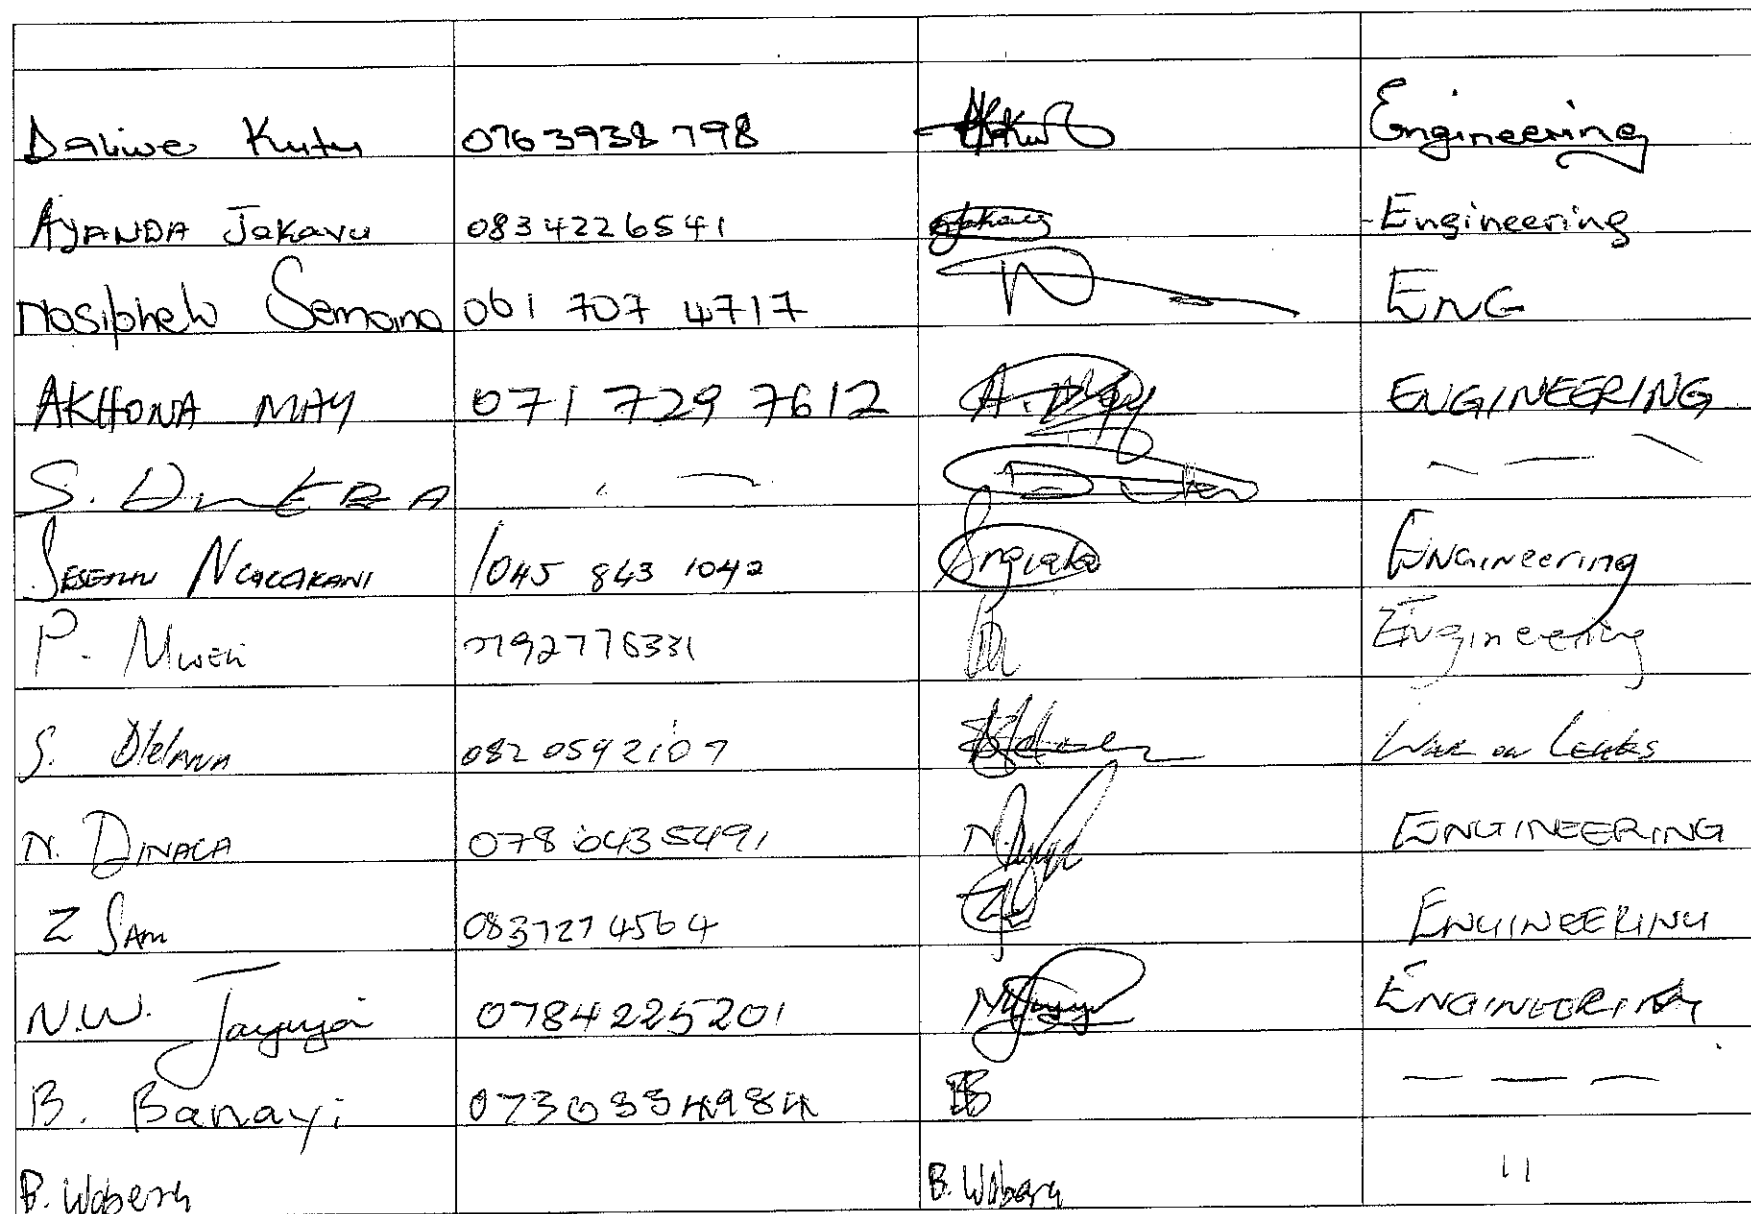 Daliwe Kutu 0763938798 Engineering
AYANDA Jakavu 0834226541 Engineering
Nosiphelo Semana 061 707 4717 ENG
AKHONA MAY 071 729 7612 A. May ENGINEERING
S. — — — —
/045 843 1042 Engineering
P. Mweli 0792776331 Engineering
S. Dlelana 0820592107 War on Leaks
N. DINACA 078 6435491 ENGINEERING
Z SAM 0837274564 ENGINEERING
N.W. Jayiya 0784225201 ENGINEERING
B. Banayi 0730334984 BB — — —
B. B. 11